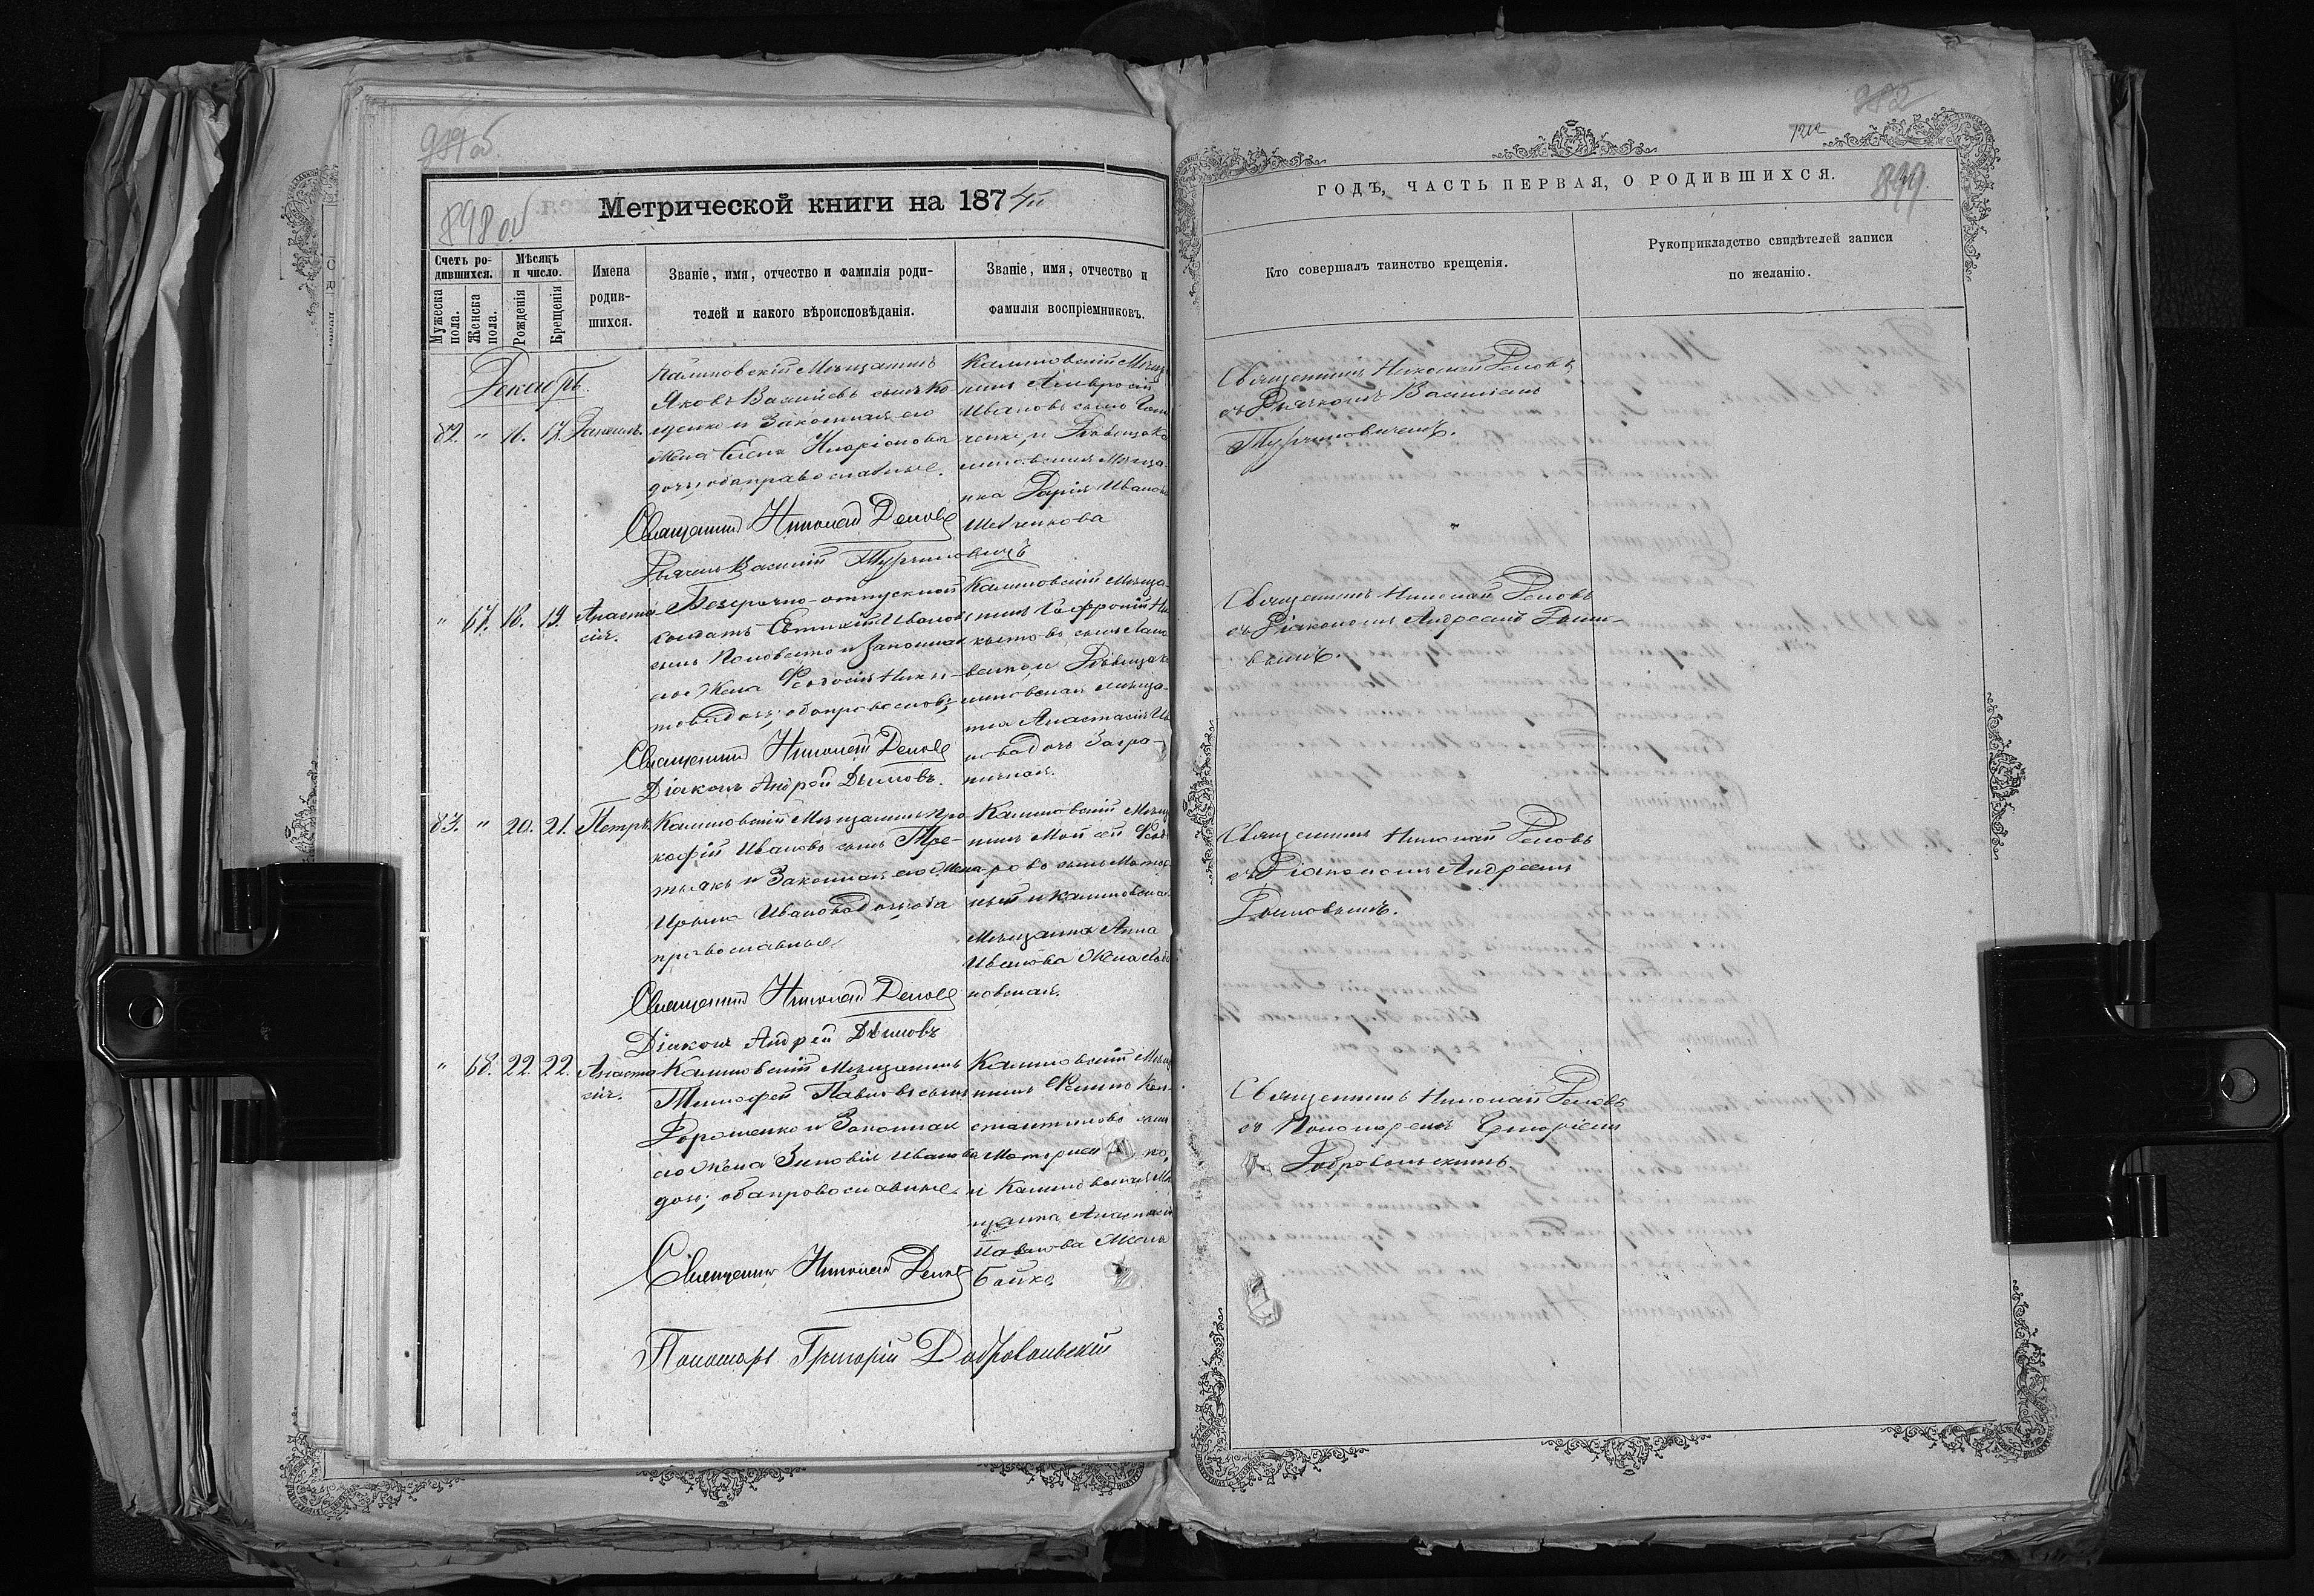 898 об
Метрической книги на 1874й
Счетъ ро-
дившихся.
Мужеска пола.
Женска пола.
Мѣсяцъ
и число.
Рожденія
Крещенія
Имена
родив-
шихся.
Званіе, имя, отчество и фамилія роди-
телей и какого вѣроисповѣданія.
Званіе, имя, отчество и
фамилія воспріемниковъ.
Декабрь
82. " 16. 17. Даніилъ.
Калиновскій Мещанинъ
Яковъ Василіевъ сынъ
и Законная его
жена Елена Иларіонова
дочь; оба православные.
Священникъ Николай Деповъ
Дьячекъ Василій Турчиновичъ
Калиновскій Меща
нинъ Амвросій
Ивановъ сынъ
ченко, и Девица Ка
линовская Меща-
нка Дарія Иванова
Шевченкова
" 67. 18. 19. Анаста-
сія.
Безсрочно-отпускной
солдатъ Евтихій Ивановъ
сынъ и Законная
его Жена Феодосія Ники-
това дочь; оба правосл.
Священникъ Николай Деповъ
Діаконъ Андрей Дымовъ.
Калиновскій Меща-
нинъ Софроній Ни
китовъ сынъ
и Девица Ка
линовская меща-
нка Анастасія Ива
нова дочь Загра-
ничная.
83. " 20. 21. Петръ.
Калиновскій Мещанинъ Про
кофій Ивановъ сынъ Тре-
тьякъ и Законная его Жена
Ирина Иванова дочь, оба
православные
Священникъ Николай Деповъ
Діаконъ Андрей Дымовъ
Калиновскій Меща
нинъ Мойсей Федо
ровъ сынъ
и Калиновская
Мещанка Анна
Иванова Жена
новская.
" 68. 22. 22. Анаста
сія.
Калиновскій Мещанинъ
Тимофей Павловъ сынъ
Дорошенко и Законная
его Жена Зиновія Иванова
дочь; оба православные.
Священникъ Николай Деповъ
Пономарь Григорій Добровольскій
Калиновскій Меща
нинъ Филипъ Кон-
стантиновъ сынъ
и Калиновская Ме
щанка Анастасія
Павлова Жена
Бойко
1212
899
ГОДЪ, ЧАСТЬ ПЕРВАЯ, О РОДИВШИХСЯ.
Кто совершалъ таинство крещенія.
Рукоприкладство свидѣтелей записи
по желанію.
Священникъ Николай Деповъ
съ Дьячкомъ Василіемъ
Турчиновичемъ.
Священникъ Николай Деповъ
съ Діакономъ Андреемъ Дымо-
вымъ.
Священникъ Николай Деповъ
съ Діакономъ Андреемъ
Дымовымъ.
Священникъ Николай Деповъ
съ Пономаремъ Григоріемъ
Добровольскимъ